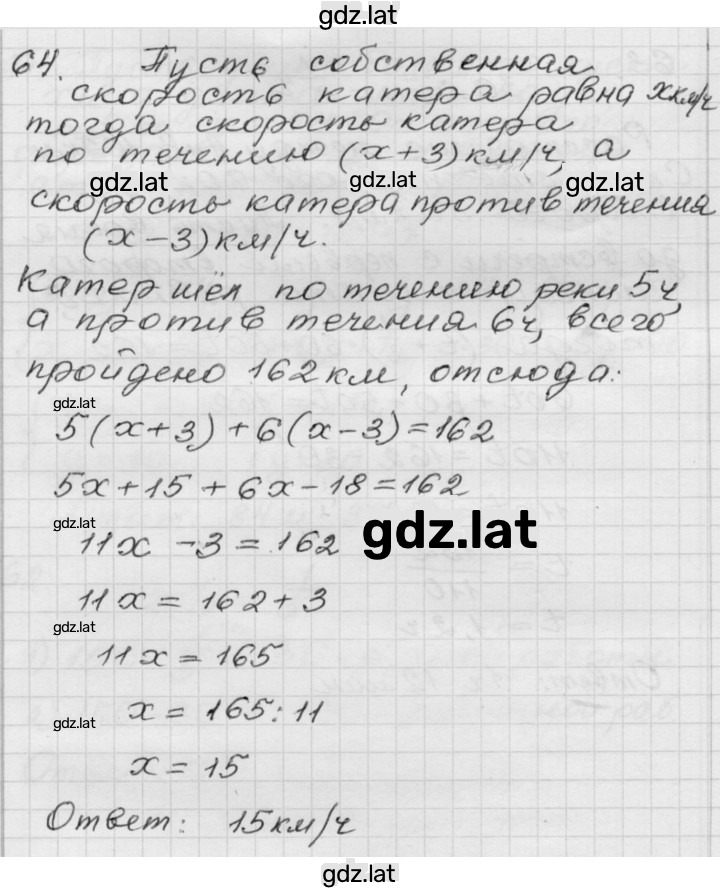 gdz.lat
64. Пусть собственная
скорость катера равна x км/ч
тогда скорость катера
по течению (x+3) км/ч, а
gdz.lat gdz.lat gdz.lat
скорость катера против течения
(x-3) км/ч.
Катер шёл по течению реки 5ч,
а против течения 6ч, всего
пройдено 162 км, отсюда:
gdz.lat
5(x+3)+6(x-3)=162
5x+15+6x-18=162
gdz.lat
11x-3=162
gdz.lat
11x=162+3
gdz.lat
11x=165
x=165:11
gdz.lat
x=15
Ответ: 15 км/ч
gdz.lat